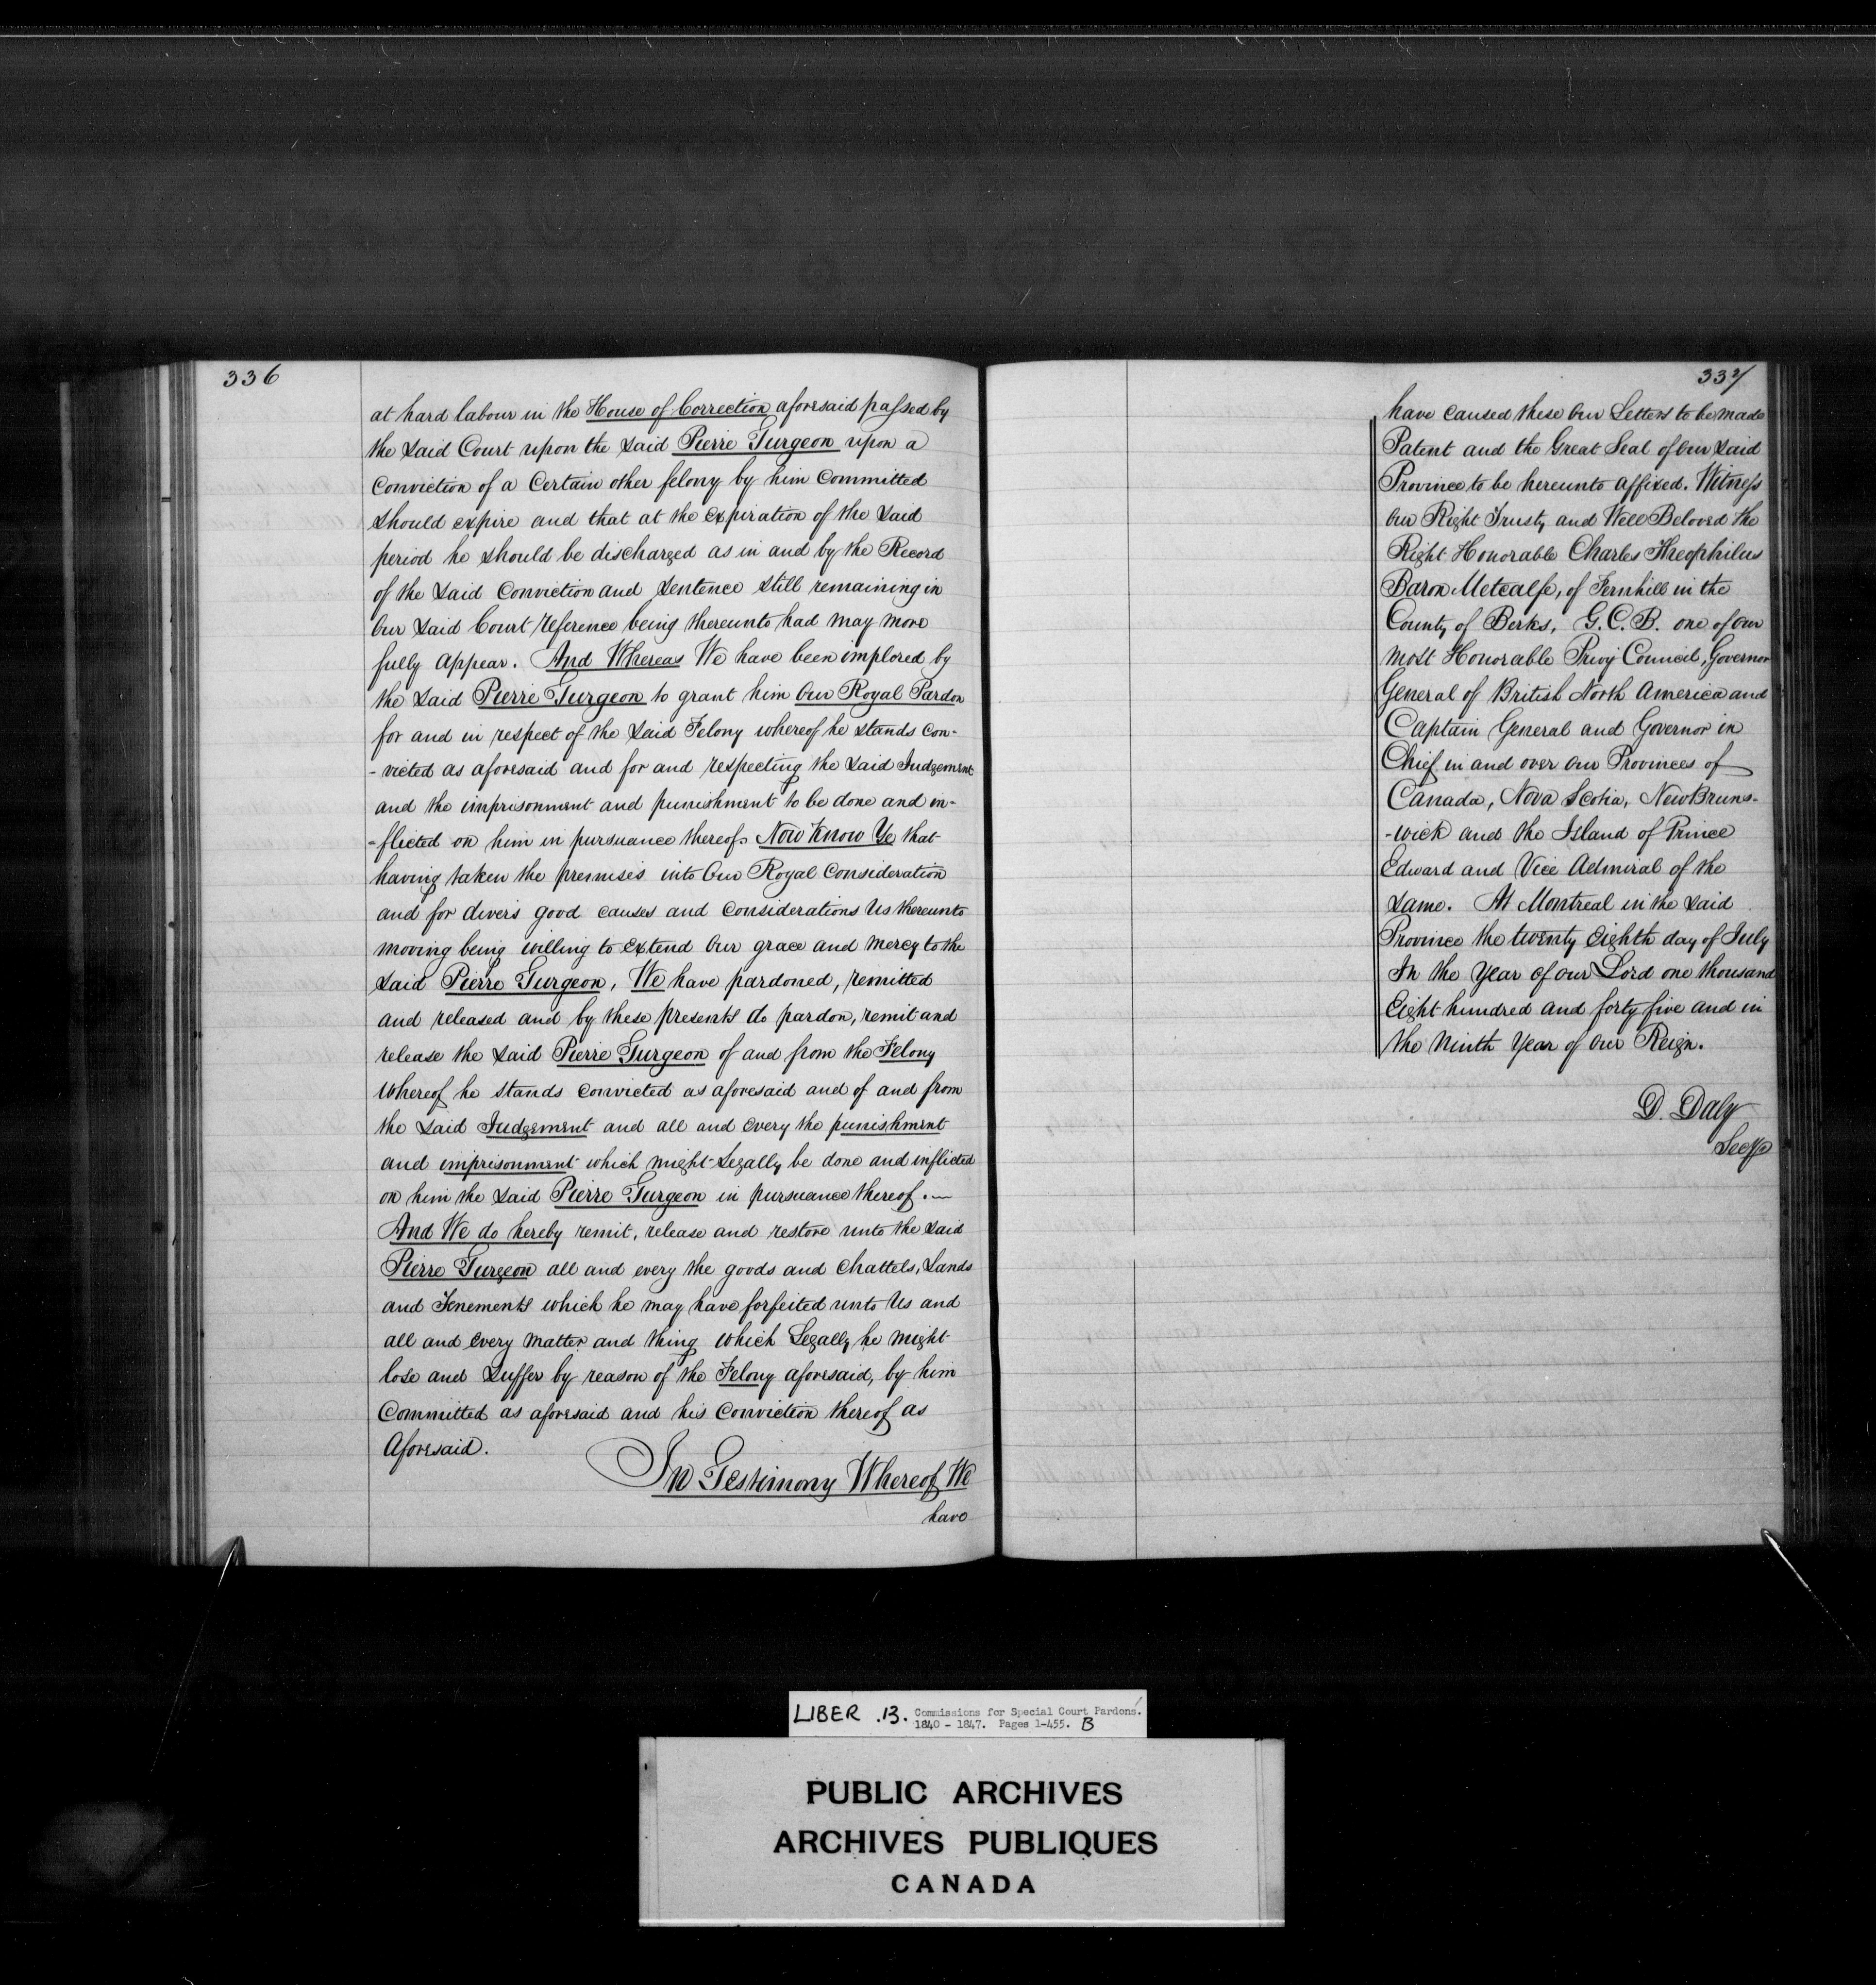 336
at hard labour in the House of Correction aforesaid passed by
the said Court upon the said Pierre Turgeon upon a
Conviction of a Certain other felony by him Committed
should expire and that at the expiration of the said
period he should be discharged as in and by the Record
of the said Conviction and sentence still remaining in
Our said Court reference being thereunto had may more
fully appear. And Whereas We have been implored by
the said Pierre Turgeon to grant him Our Royal Pardon
for and in respect of the said Felony whereof he stands con-
-victed as aforesaid and for and respecting the said Judgement
and the imprisonment and punishment to be done and in-
-flicted on him in pursuance thereof. Now Know Ye that
having taken the premises into Our Royal Consideration
and for divers good causes and considerations Us thereunto
moving being willing to Extend Our grace and mercy to the
said Pierre Turgeon, We have pardoned, remitted
and released and by these presents do pardon, remit and
release the said Pierre Turgeon of and from the Felony
Whereof he stands Convicted as aforesaid and of and from
the said Judgement and all and every the punishment
and imprisonment which might Legally be done and inflicted
on him the said Pierre Turgeon in pursuance thereof.—
And We do hereby remit, release and restore unto the said
Pierre Turgeon all and every the goods and Chattels, Lands
and Tenements which he may have forfeited unto Us and
all and every matter and thing which Legally he might
lose and Suffer by reason of the Felony aforesaid, by him
Committed as aforesaid and his Conviction thereof as
Aforesaid.
In Testimony Whereof We
have
337
have caused these Our Letters to be made
Patent and the Great Seal of Our said
Province to be hereunto affixed. Witness
Our Right Trusty and Well Beloved the
Right Honorable Charles Theophilus
Baron Metcalfe, of Fernhill in the
County of Berks, G.C.B. one of Our
most Honorable Privy Council, Governor
General of British North America and
Captain General and Governor in
Chief in and over Our Provinces of
Canada, Nova Scotia, New Bruns-
-wick and the Island of Prince
Edward and Vice Admiral of the
same. At Montreal in the said
Province the twenty Eighth day of July
In the Year of our Lord one thousand
Eight hundred and forty five and in
the Ninth Year of Our Reign.
D. Daly
Secy
LIBER .13. Commissions for Special Court Pardons.
1840 - 1847. Pages 1-455. B
PUBLIC ARCHIVES
ARCHIVES PUBLIQUES
CANADA